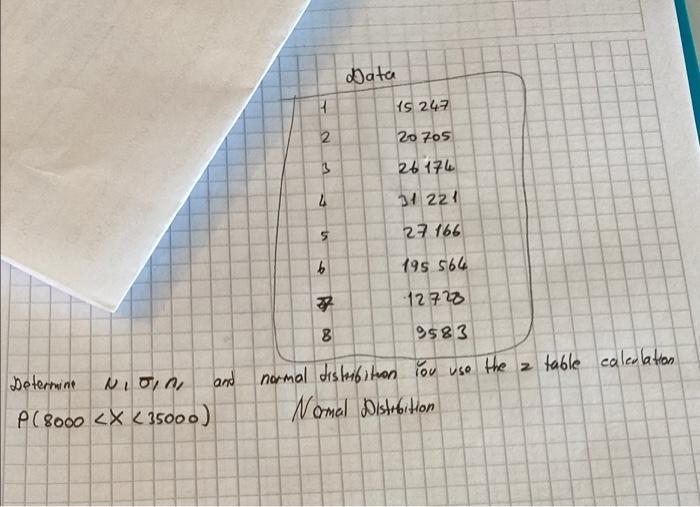 Data
1 15 247
2 20 705
3 26 174
4 31 221
5 27 166
6 195 564
7 12 728
8 9583
Determine N, σ, n, and normal distribition You use the z table calculation
P(8000 < X < 35000) Normal Distribition